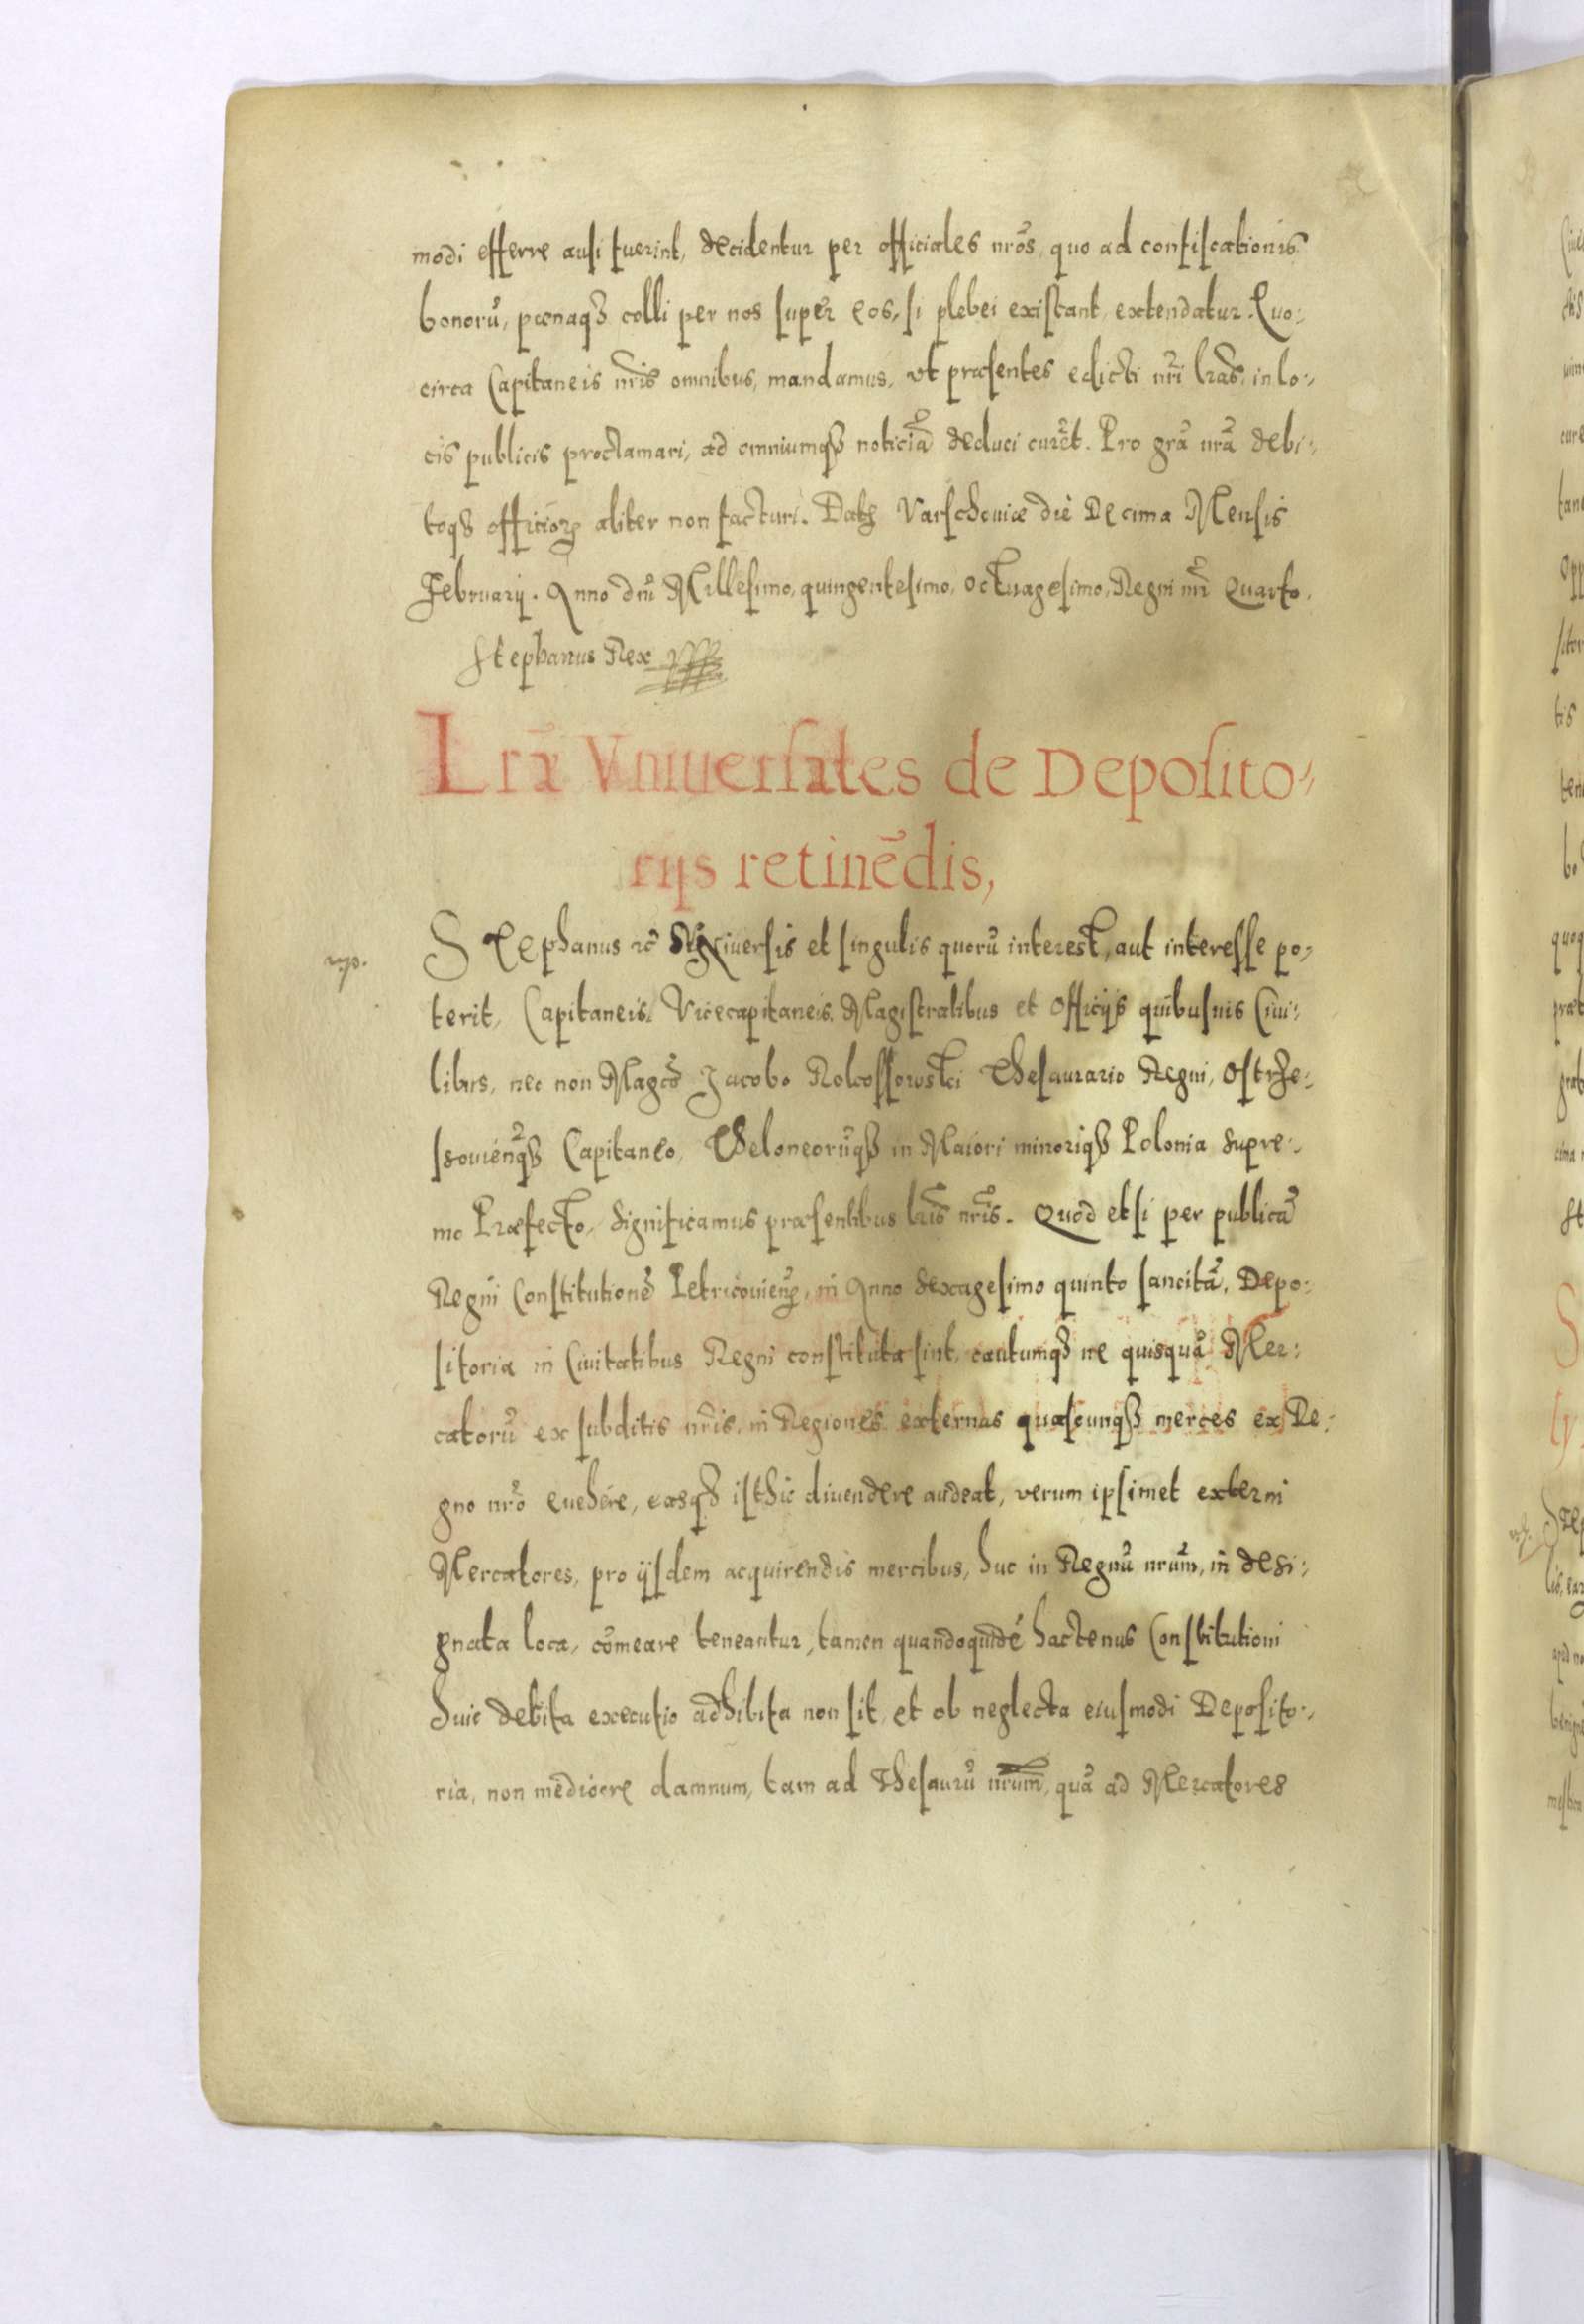 modi efferre ausi fuerint, decidentur per officiales nr̃os, quo ad confiscationis
bonorũ, pœnaqȝ colli per nos super eos, si plebei existant, extendatur. Quo-,
circa Capitaneis nr̃is omnibus, mandamus, vt præsentes edicti nr̃i lr̃as, in lo-,
cis publicis proclamari, ad omniumqȝ noticiã deduci curẽt. Pro grã nrã debi-,
toqȝ officioꝝ aliter non facturi. Datꝭ Varschouiæ die Decima Mensis
Februarij. Anno dñi Millesimo, quingentesimo, octuagesimo, Regni nr̃i Quarto.
Stephanus Rex
Lrã Vniuersales de Deposito-,
rijs retinẽdis,
Stephanus ꝛc̃ Vniuersis et singulis quorũ interest, aut interesse po-,
terit, Capitaneis, Vicecapitaneis, Magistratibus et Officijs quibusuis Ciui-,
libus, nec non Magcõ Jacobo Rokossowski Thesaurario Regni, Ostrze-,
ssouienqȝ Capitaneo, Theloneorũqȝ in Maiori minoriqȝ Polonia supre-,
mo Præfecto, Significamus præsentibus lr̃is nr̃is. Quod etsi per publicã
Regni Constitutionẽ Petricouienꝭ, in Anno sexagesimo quinto sancitã, Depo-,
sitoria in Ciuitatibus Regni constituta sint, cautumqȝ ne quisquã Mer-,
catorũ ex subditis nr̃is, in Regiones externas quascunqȝ merces ex Re-,
gno nr̃o euehere, easqȝ isthic diuendere audeat, verum ipsimet externi
Mercatores, pro ijsdem acquirendis mercibus, huc in Regnũ nrũm, in desi-,
gnata loca, cõmeare teneantur, tamen quandoquidẽ hactenus Constitutioni
huic debita executio adhibita non sit, et ob neglecta eiusmodi Deposito-,
ria, non mediocre damnum, tam ad Thesaurũ nrũm, quã ad Mercatores